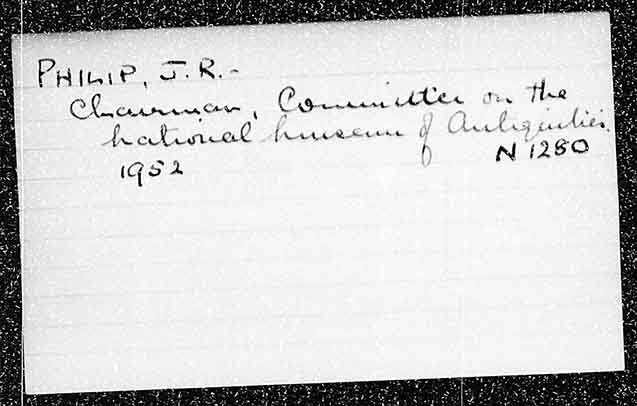 PHILIP, J.R.-
Chairman, Committee on the
National Museum of Antiquities.
1952 N 1280